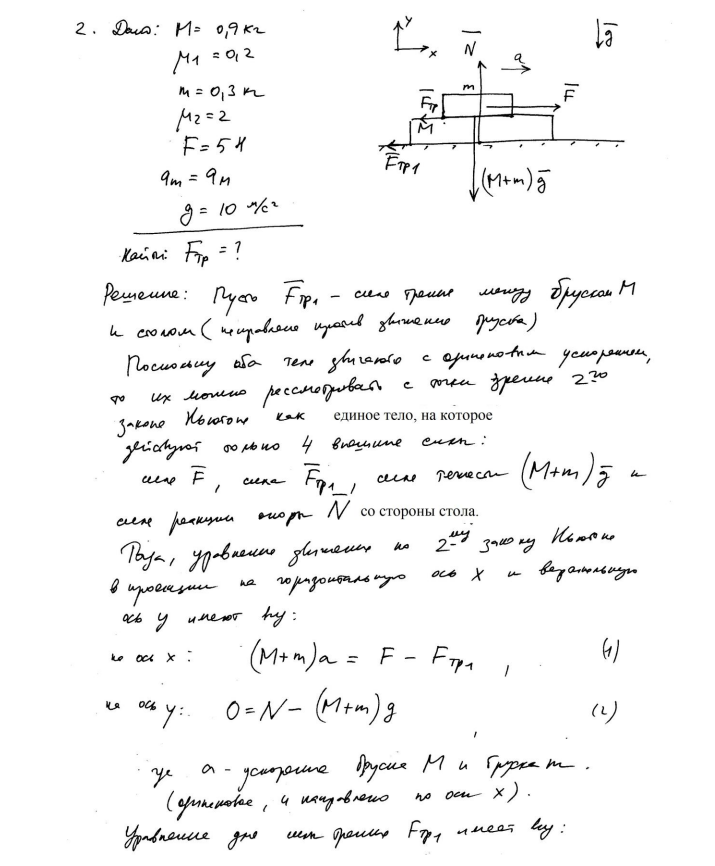 2. Дано: M = 0,9 кг
μ1 = 0,2
m = 0,3 кг
μ2 = 2
F = 5 Н
am = aM
g = 10 м/с²
Найти: Fтр = ?
y
x
N
a
g
m
Fтр
F
M
Fтр1
(M+m)g
Решение: Пусть Fтр1 – сила трения между бруском M
и столом (направлена против движения бруска)
Поскольку оба тела двигаются с одинаковым ускорением,
то их можно рассматривать с точки зрения 2го
закона Ньютона как единое тело, на которое
действуют только 4 внешние силы:
сила F, сила Fтр1, сила тяжести (M+m)g и
сила реакции опоры N со стороны стола.
Тогда, уравнение движения по 2му закону Ньютона
в проекции на горизонтальную ось X и вертикальную
ось y имеют вид:
на ось x: (M+m)a = F – Fтр1, (1)
на ось y: 0 = N – (M+m)g (2)
где a – ускорение бруска M и бруска m.
(одинаковое, и направлено по оси x).
Уравнение для силы трения Fтр1 имеет вид: